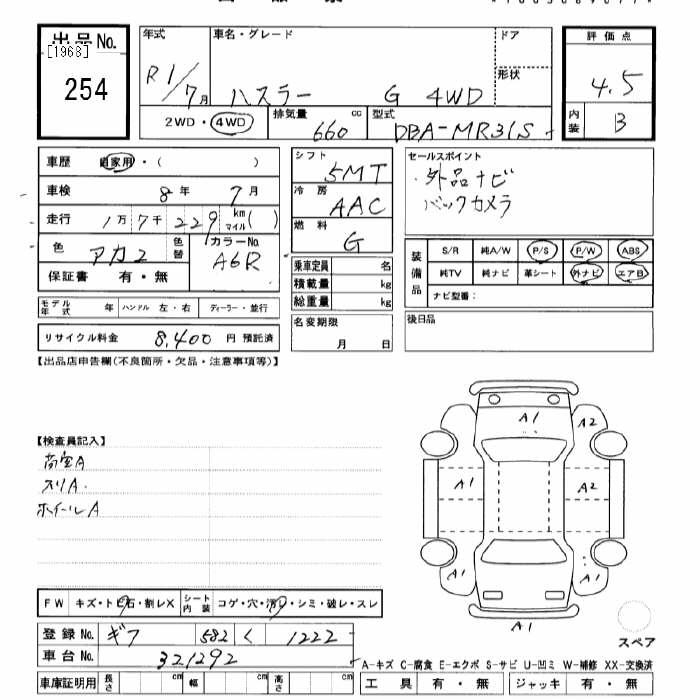 出品No.
[1963]
254
年式
R1/7月
車名・グレード
ハスラー G 4WD
ドア
形状
評価点
4.5
内装
B
2WD・4WD
排気量
660 cc
型式
DBA-MR31S
車歴 自家用・( )
車検 8年 7月
走行 1万7千229 km マイル( )
色 アカ2 色替 カラーNo. A6R
保証書 有・無
モデル年式 年 ハンドル 左・右 ディーラー・並行
リサイクル料金 8,400 円 預託済
シフト 5MT
冷房 AAC
燃料 G
乗車定員 名
積載量 kg
総重量 kg
名変期限
月 日
セールスポイント
・外品ナビ
バックカメラ
装備品
S/R 純A/W P/S P/W ABS
純TV 純ナビ 革シート 外ナビ エアB
ナビ型番:
後日品
【出品店申告欄(不良箇所・欠品・注意事項等)】
【検査員記入】
スリA
ホイールA
A1
A2
A1
A2
A1
A1
A1
スペア
FW キズ・トビ石・割レX シート内装 コゲ・穴・汚レ・シミ・破レ・スレ
登録No. ギフ 582 く 1222
車台No. 321292
車庫証明用 長さ cm 幅 cm 高さ cm
A-キズ C-腐食 E-エクボ S-サビ U-凹ミ W-補修 XX-交換済
工具 有・無 ジャッキ 有・無